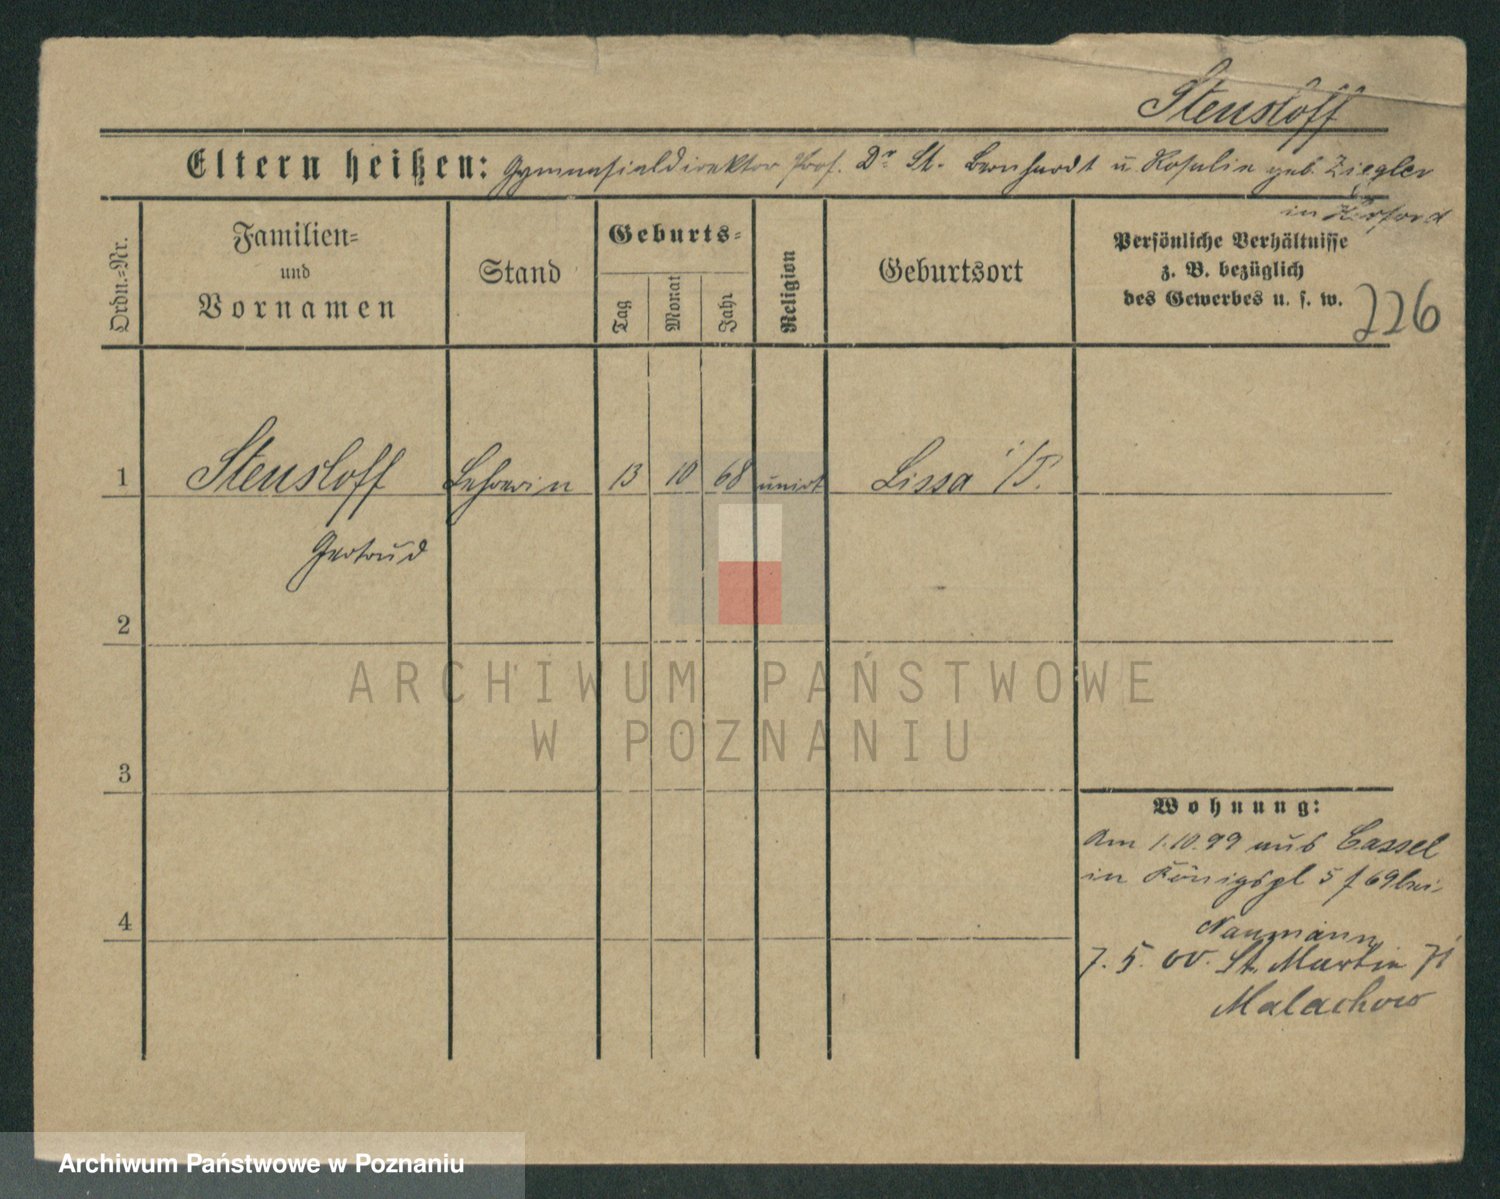 Stensloff
Eltern heißen: Gymnasialdirektor Prof. Dr St. Bernhardt u. Rosalie geb. Ziegler
in Herford
Ordn.-Nr.
Familien-
und
Vornamen
Stand
Geburts-
Tag
Monat
Jahr
Religion
Geburtsort
Persönliche Verhältnisse
z. B. bezüglich
des Gewerbes u. s. w.
226
1 Stensloff Lehrerin 13 10 68 unirt Lissa i/P.
Gertrud
2
ARCHIWUM PAŃSTWOWE
W POZNANIU
3
Wohnung:
Am 1.10.99 aus Cassel
in Königspl 5 f 69 bei
4
Naumann
7. 5. 00. St. Martin 71
Malachow
Archiwum Państwowe w Poznaniu